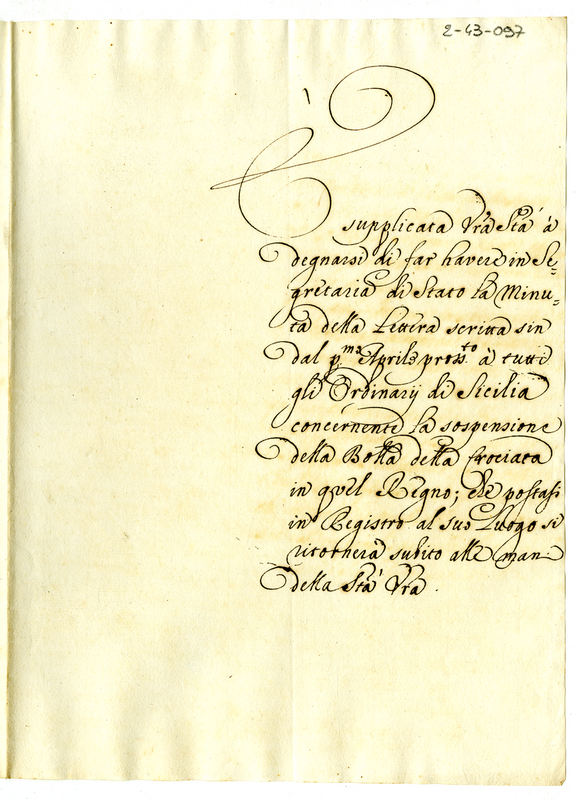 2-43-097
È
supplicata Vrã Stà à
degnarsi di far havere in Se=
gretaria di Stato la Minu=
ta della Lettera scritta sin
dal p.mo Aprile pross.to à tutti
gli Ordinarij di Sicilia
concernente la sospensione
della Bolla della Crociata
in quel Regno; che postasi
in Registro al suo Luogo si
ritornerà subito alle mani
della Stà Vrã.